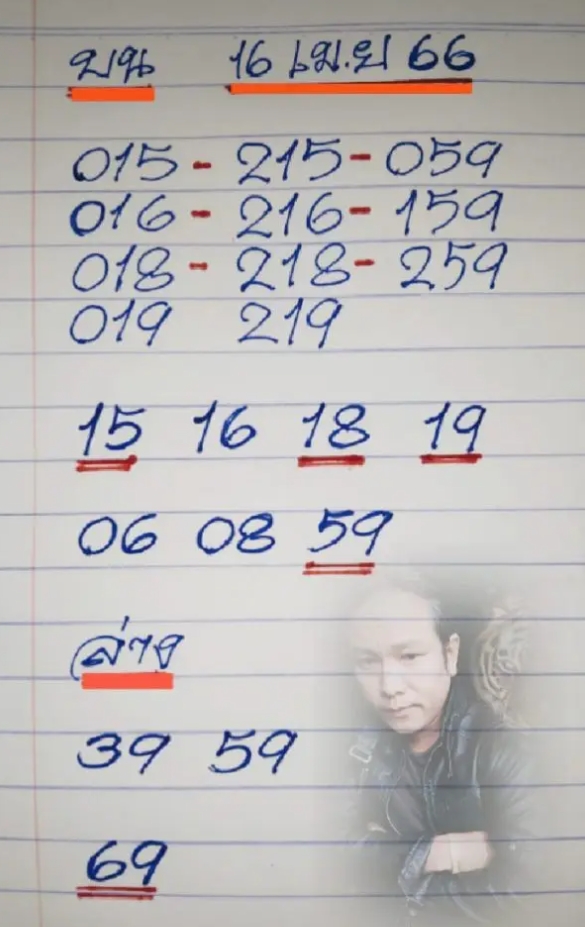 บน 16 เม.ย 66
015 - 215 - 059
016 - 216 - 159
018 - 218 - 259
019 219
15 16 18 19
06 08 59
ล่าง
39 59
69